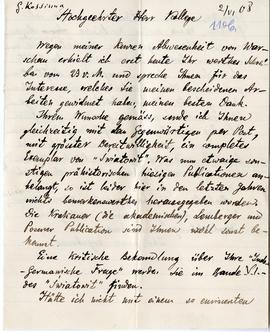 G. Kossinna
2/VI 08
1106.
Hochgeehrter Herr College
Wegen meiner kurzen Abwesenheit von War-
schau erhielt ich erst heute Ihr werthes Schrei-
ba von 23 v. M. und spreche Ihnen für das
Interesse, welches Sie meinen bescheidenen Ar-
beiten gewidmet habe, meinen besten Dank.
Ihrem Wunsche gemäss, sende ich Ihnen
gleichzeitig mit dem Gegenwärtigen per Post,
mit grösster Bereitwilligkeit, ein completes
Exemplar von "Światowit". Was nun etwaige son-
stigen prähistorischen hiesigen Publicationen an-
belangt, so ist leider hier in den letzten Jahren
nichts bemerkenswerthes herausgegeben worden.
Die Krakauer (die akademischen), Lemberger und
Posener Publication sind Ihnen wohl sonst be-
kannt.
Eine kritische Behandlung über Ihre "Indo-
germanische Frage" werden Sie im Bande VI.
des "Światowit" finden.
Hätte ich nicht mit einem so eminenten